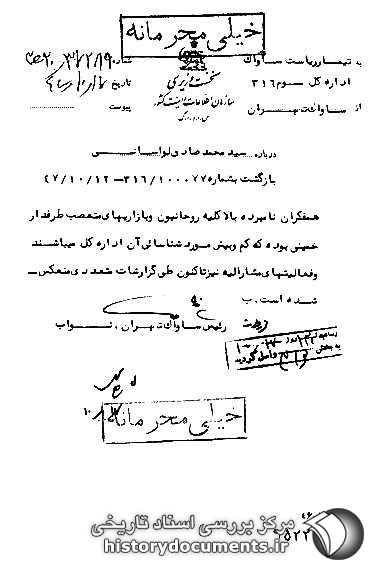 خیلی محرمانه
به تیمسار ریاست ساواک
اداره کل سوم ۳۱۶
از ساواک تهران
نخست وزیری
سازمان اطلاعات و امنیت کشور
شماره
تاریخ
پیوست
درباره سید محمد صادق لواسانی
بازگشت بشماره ۳۱۶/۱۰۰۰۷۷-۴۷/۱۰/۱۲
همفکران نامبرده بالا کلیه روحانیون و بازاریهای متعصب طرفدار
خمینی بوده که کم و بیش مورد شناسائی آن اداره کل میباشند
و فعالیتهای مشارالیه نیز تاکنون طی گزارشات متعددی منعکس
شده است. ب
رئیس ساواک تهران. نواب
خیلی محرمانه
مرکز بررسی اسناد تاریخی
historydocuments.ir